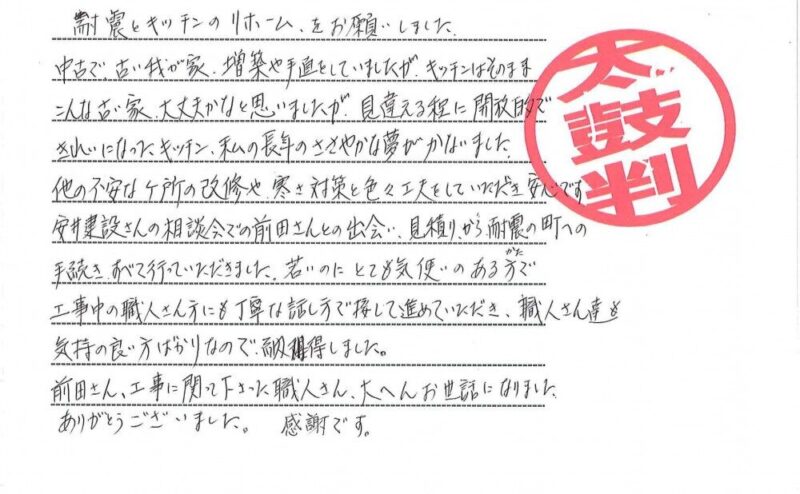 耐震とキッチンのリホーム、をお願いしました。
中古で、古い我が家、増築や手直をしていましたが、キッチンはそのまま
こんな古い家、大丈夫かなと思いましたが、見違える程に開放的で
きれいになったキッチン、私の長年のささやかな夢がかないました。
他の不安なケ所の改修や、寒さ対策と色々工夫をしていただき安心です
安井建設さんの相談会での前田さんとの出会い、見積り、から耐震の町への
手続き、すべて行っていただきました。若いのにとても気使いのある方で
がた
工事中の職人さん方にも丁寧な話し方で接して進めていただき、職人さん達も
気持の良い方ばかりなので、得しました。
前田さん、工事に関って下さった職人さん、大へんお世話になりました
ありがとうございました。 感謝です。
太鼓判